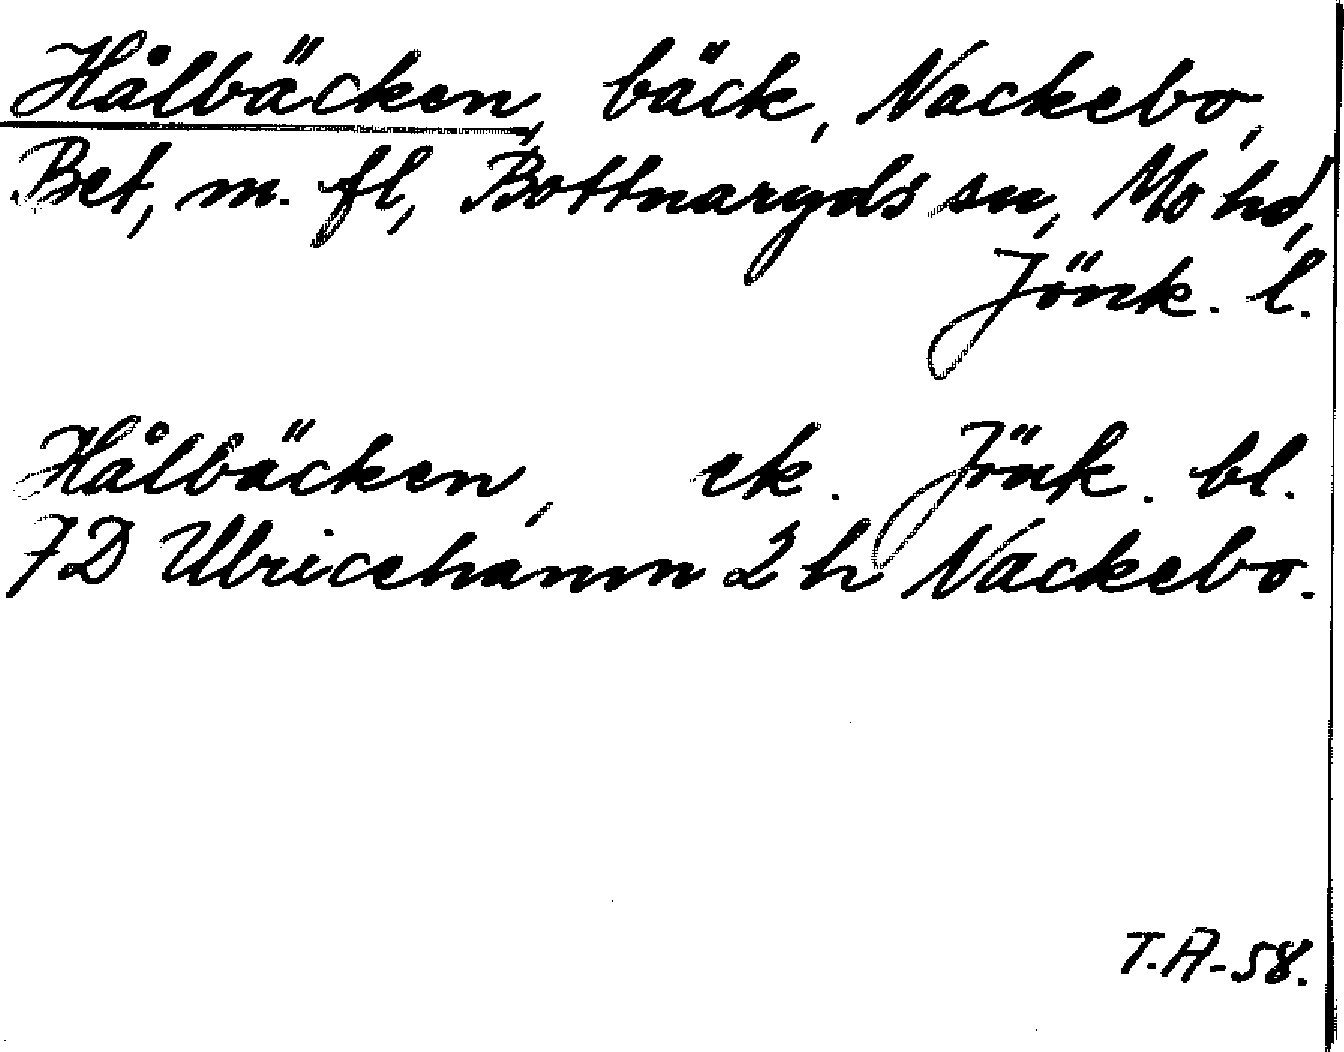 Hålbäcken, bäck, Nackebo,
Bet, m. fl, Bottnaryds sn, Mo hd,
Jönk. l.
Hålbäcken, ek. Jönk. bl.
7D Ulricehamn 2 h Nackebo.
T.A-58.